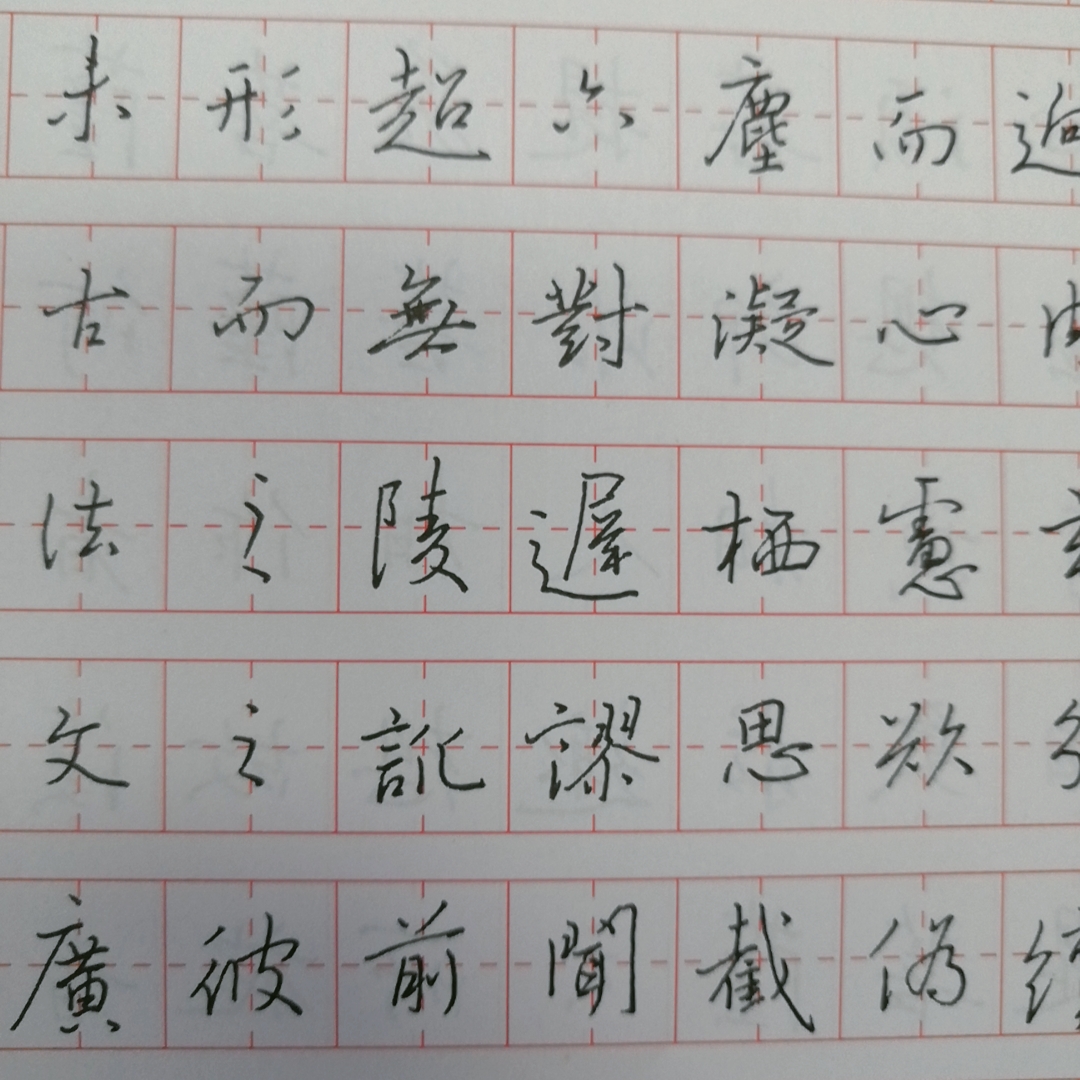 未形超六塵而迥
古而無對凝心内
法之陵遲栖慮玄
文之訛謬思欲分
廣彼前聞截偽續